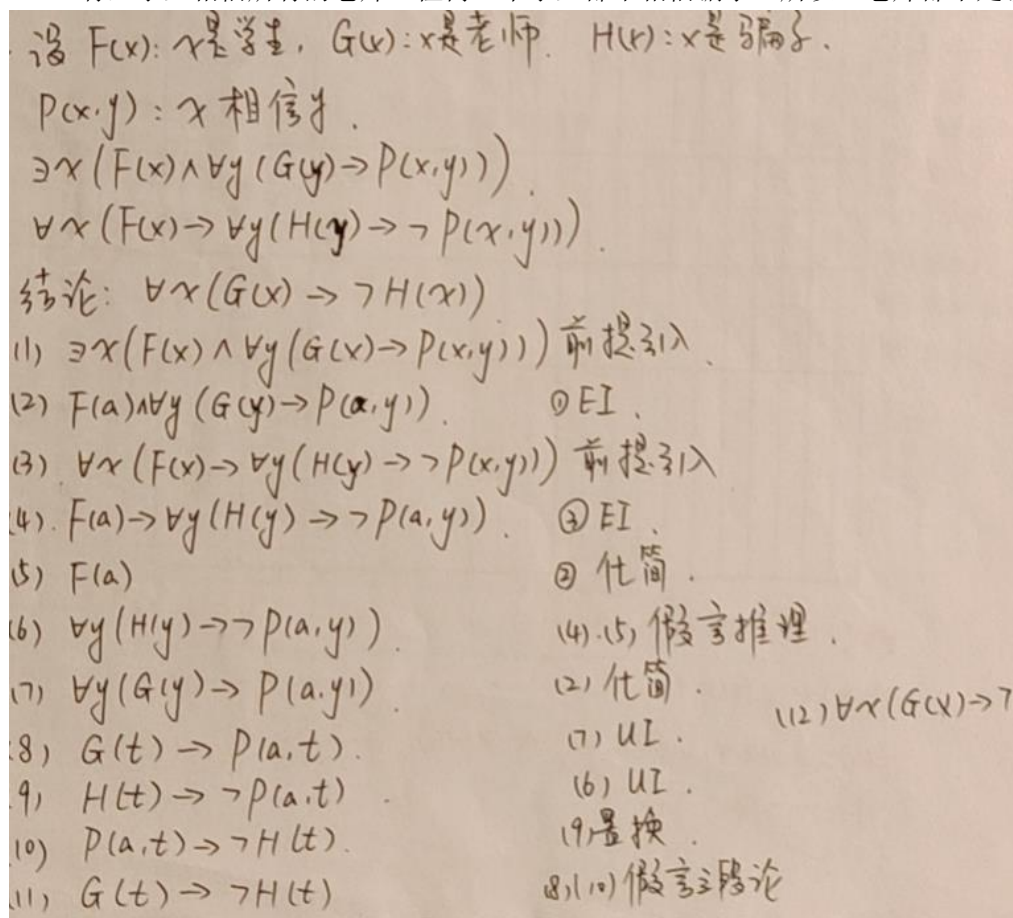 设 F(x): x是学生, G(x): x是老师. H(x): x是骗子.
P(x,y): x 相信y.
∃x(F(x)∧∀y(G(y)→P(x,y))).
∀x(F(x)→∀y(H(y)→¬P(x,y))).
结论: ∀x(G(x)→¬H(x))
(1) ∃x(F(x)∧∀y(G(x)→P(x,y))) 前提引入.
(2) F(a)∧∀y(G(y)→P(a,y)). ①EI.
(3) ∀x(F(x)→∀y(H(y)→¬P(x,y))) 前提引入
(4). F(a)→∀y(H(y)→¬P(a,y)). ③EI.
(5) F(a) ②化简.
(6) ∀y(H(y)→¬P(a,y)). (4).(5) 假言推理.
(7) ∀y(G(y)→P(a,y)). (2) 化简.
(12) ∀x(G(x)→
(8) G(t)→P(a,t). (7) UI.
(9) H(t)→¬P(a,t). (6) UI.
(10) P(a,t)→¬H(t). (9)置换.
(11) G(t)→¬H(t) (8)(10) 假言三段论